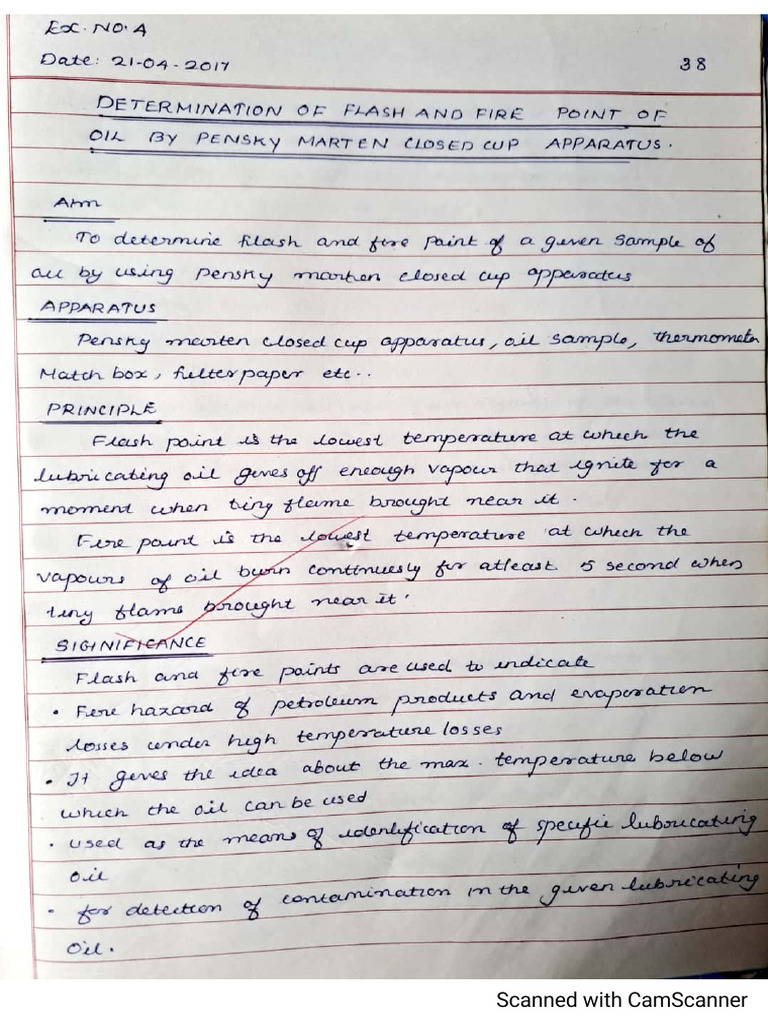 Ex. NO. 4
Date: 21-04-2017
38
DETERMINATION OF FLASH AND FIRE POINT OF
OIL BY PENSKY MARTEN CLOSED CUP APPARATUS.
Aim
To determine flash and fire point of a given sample of
oil by using pensky marten closed cup apparatus
APPARATUS
Pensky marten closed cup apparatus, oil sample, thermometer
Match box, filter paper etc..
PRINCIPLE
Flash point is the lowest temperature at which the
lubricating oil gives off enough vapour that ignite for a
moment when tiny flame brought near it.
Fire point is the lowest temperature at which the
vapours of oil burn continuesly for atleast 5 second when
tiny flame brought near it.
SIGINIFICANCE
Flash and fire points are used to indicate
• Fire hazard of petroleum products and evaporation
losses under high temperature losses
• It gives the idea about the max. temperature below
which the oil can be used
• used as the means of identification of specific lubricating
oil
• for detection of contamination in the given lubricating
oil.
Scanned with CamScanner